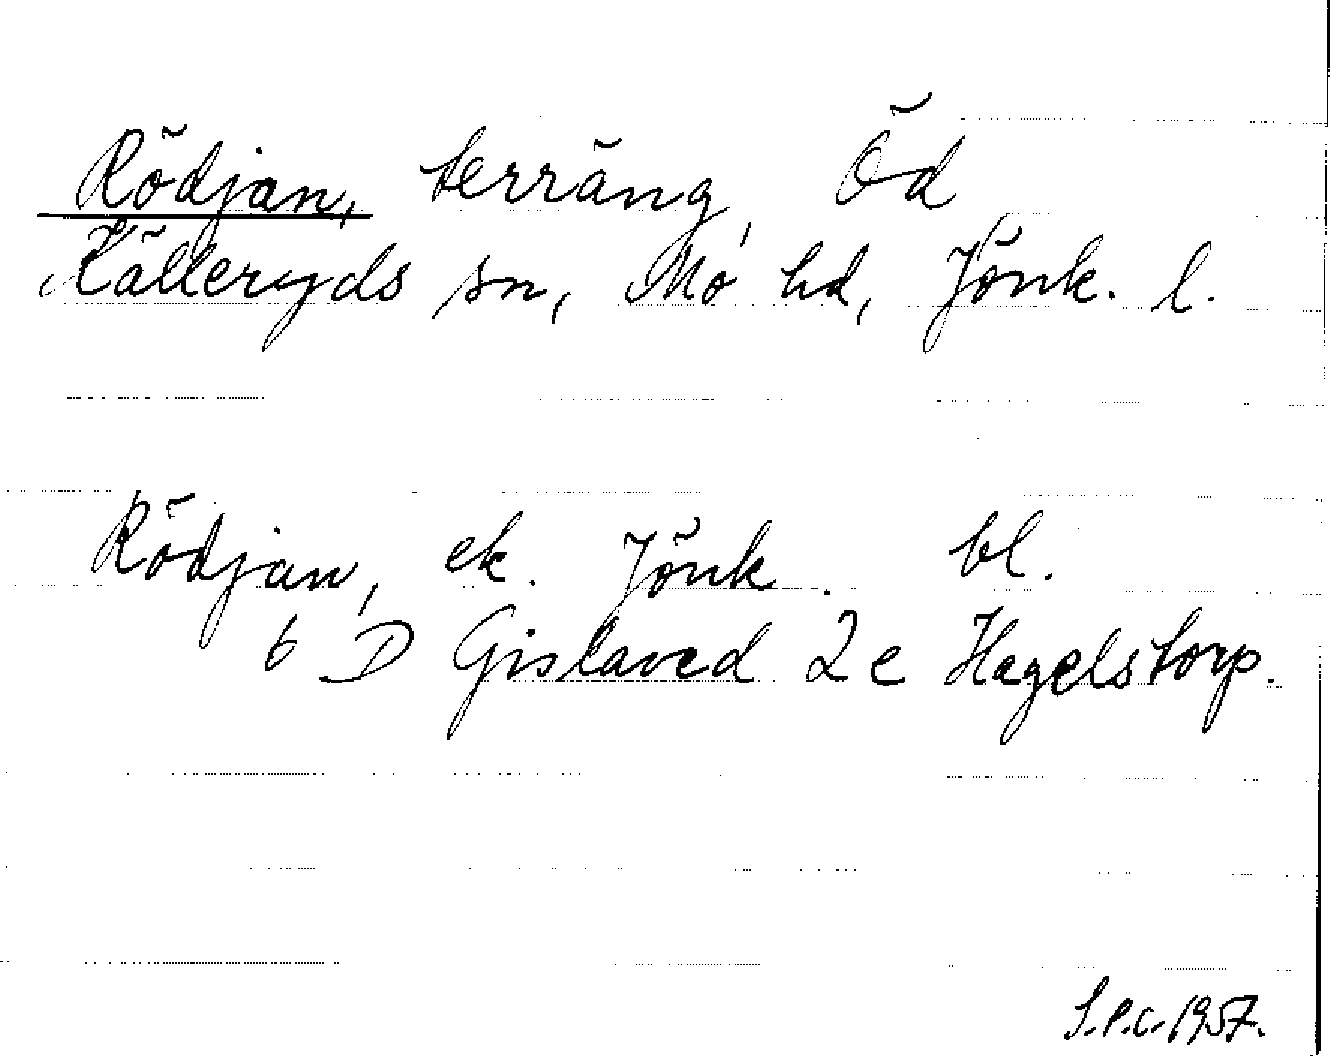 Rödjan, terräng, Öd
Källeryds sn, Mo hd, Jönk. l.
Rödjan, ek. Jönk. bl.
6 D Gislaved 2e Hagelstorp.
S.P.C. 1957.